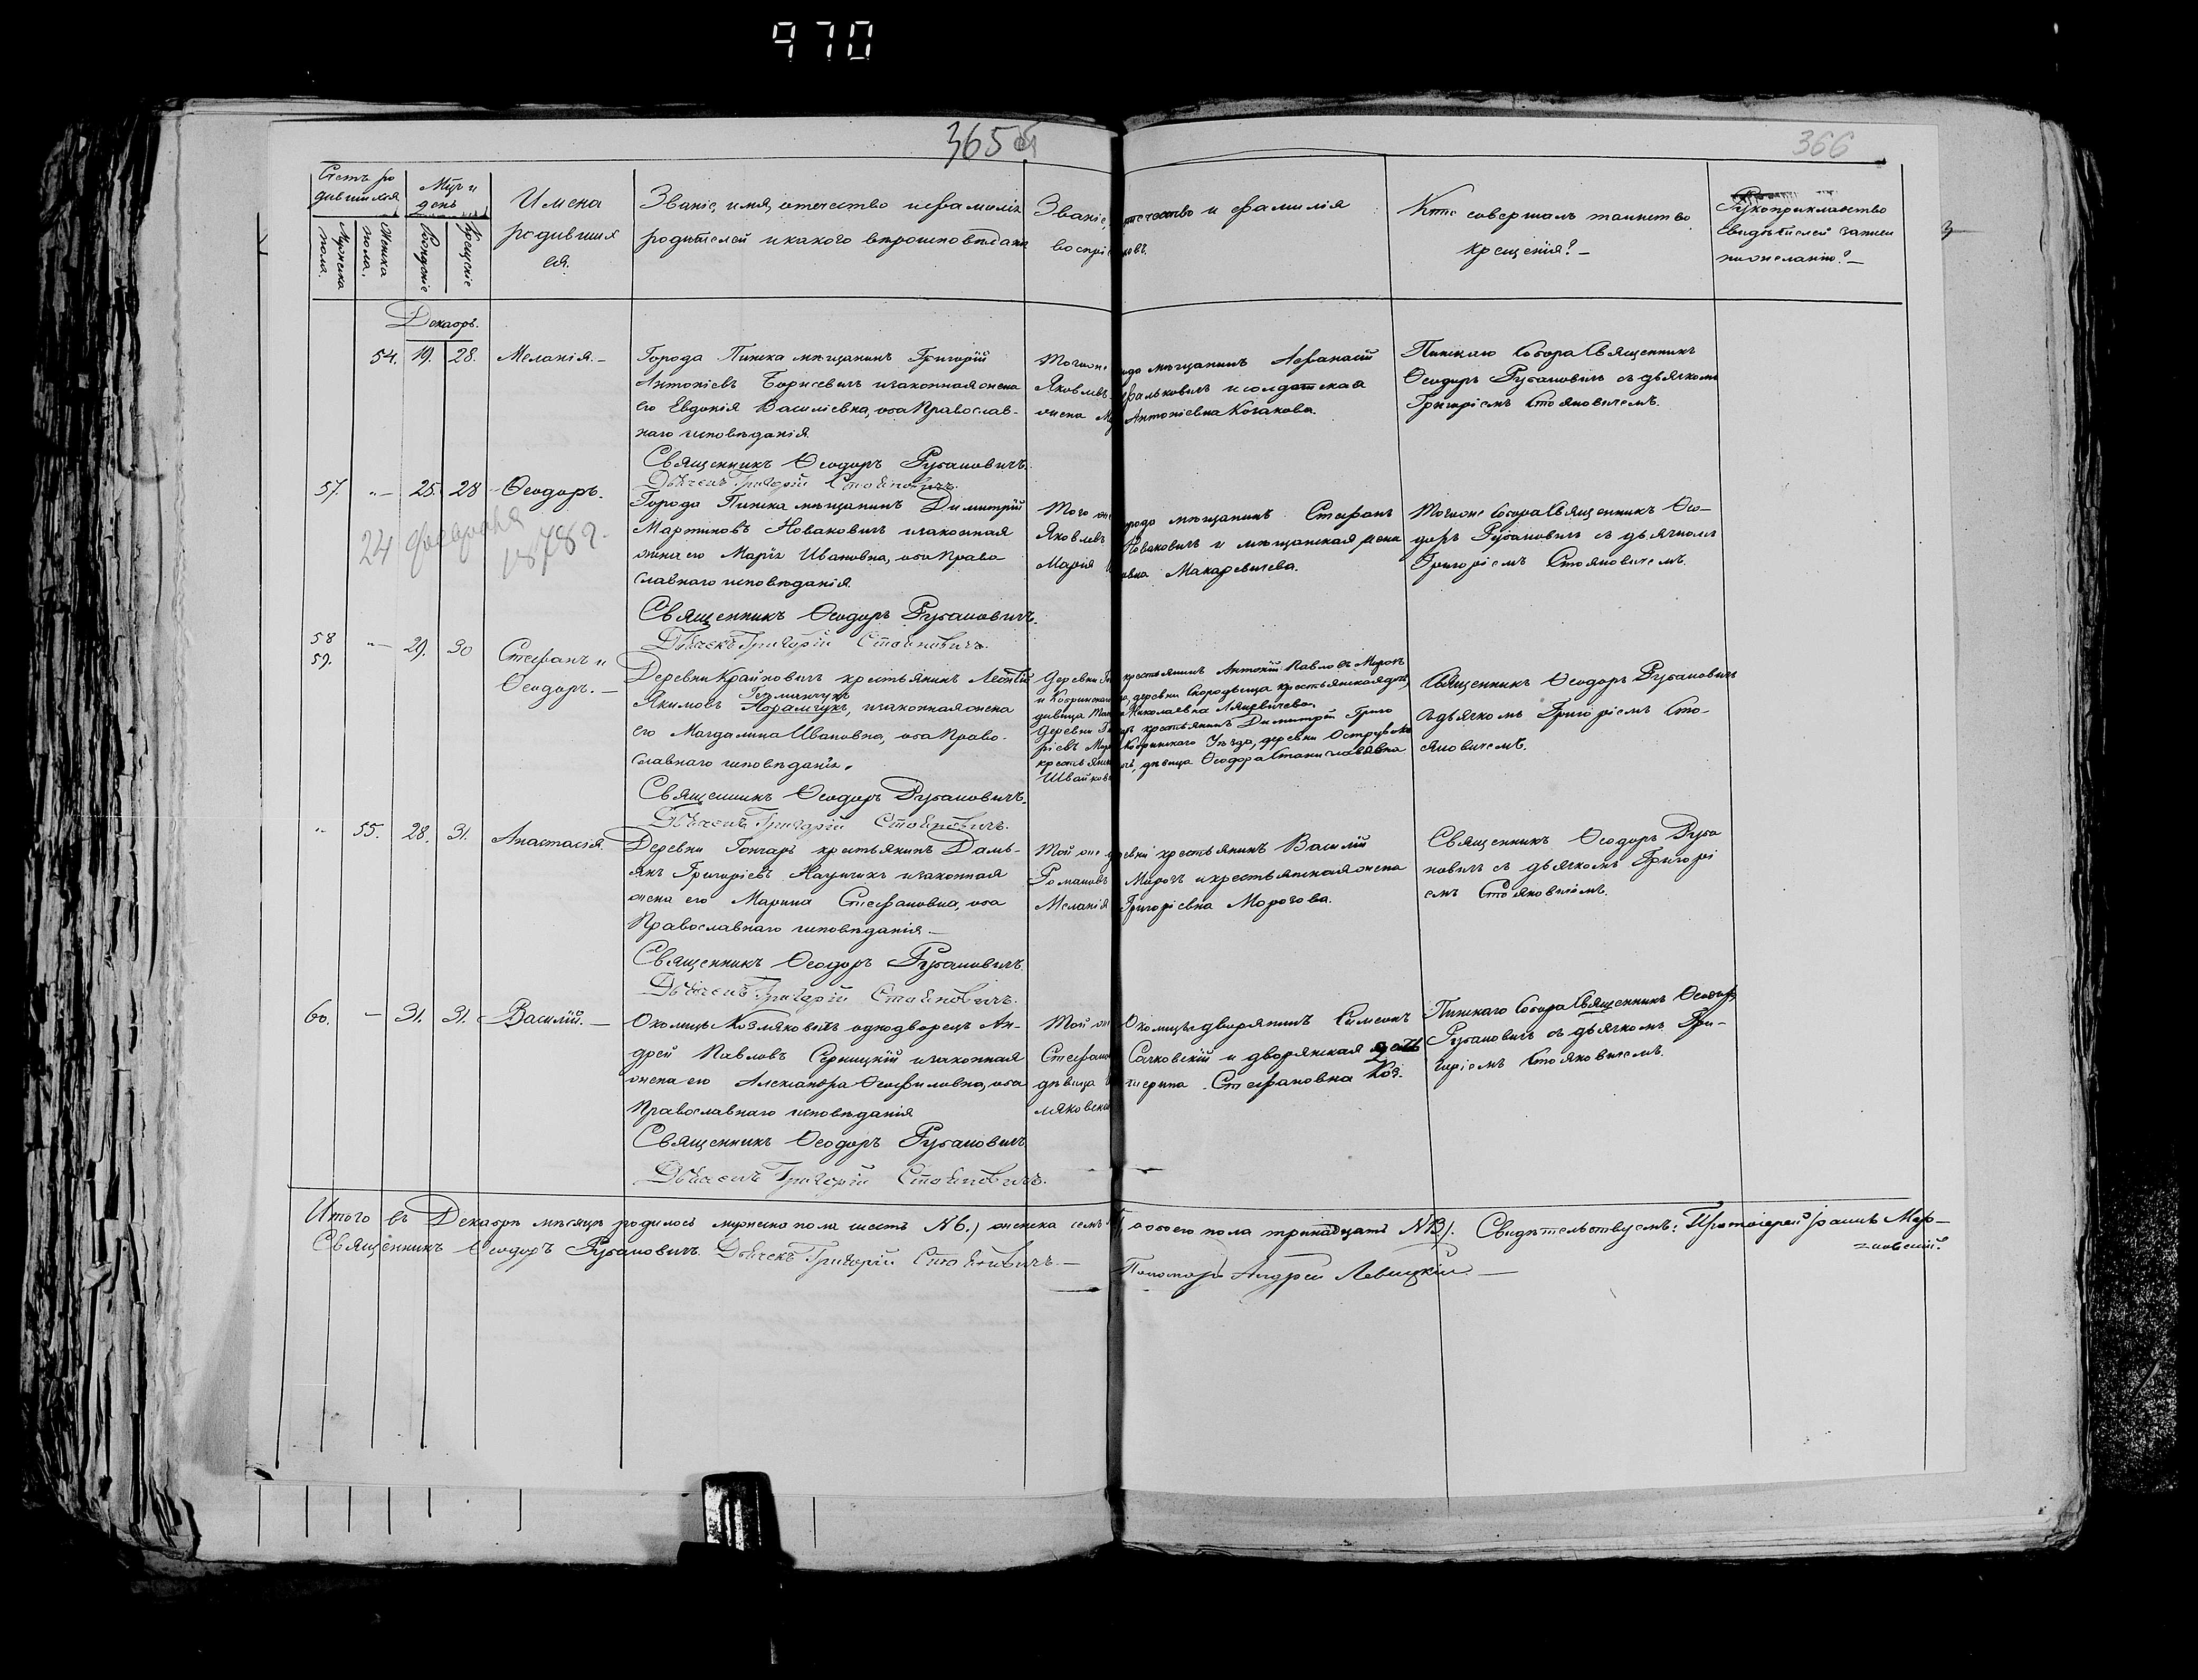 970
365 об
366
Счетъ ро
дившихся
Мужеска
пола.
Женска
пола.
Мцъ и
день
Рожденіе
Крещеніе
Имена
родивших
ся.
Званіе, имя, отчество и фамилія
родителей и какого вѣроисповѣданія
Званіе, отчество и фамилія
воспріемниковъ.
Кто совершалъ таинство
крещенія?—
Рукоприкладство
свидѣтелей записи
по желанію?—
Декабрь.
54. 19. 28. Меланія.—
Города Пинска мѣщанинъ Григорій
Антоніевъ Борисевичъ и законная жена
его Евдокія Василіевна, оба Православ-
наго исповѣданія.
Священникъ Ѳеодоръ Рубановичъ.
Дьячекъ Григорій Стояновичъ.
Того же города мѣщанинъ Афанасій
Яковлевъ Фальковичъ и солдатская
жена Антоніевна Козакова.
Пинскаго Собора Священникъ
Ѳеодоръ Рубановичъ съ дьячкомъ
Григоріемъ Стояновичемъ.
57. "— 25. 28 Ѳеодоръ.
24 февраля
1878 г.
Города Пинска мѣщанинъ Димитрій
Мартиновъ Новаковичъ и законная
жена его Марія Ивановна, оба Право
славнаго исповѣданія.
Священникъ Ѳеодоръ Рубановичъ.
Дьячекъ Григорій Стояновичъ.
Того же города мѣщанинъ Стефанъ
Яковлевъ Новаковичъ и мѣщанская жена
Марія Макаревичева.
Тогоже Собора Священникъ Ѳео-
доръ Рубановичъ съ дьячкомъ
Григоріемъ Стояновичемъ.
58
59. "— 29. 30 Стефанъ и
Ѳеодоръ.—
Деревни Крайновичъ крестьянинъ Леонтій
Якимовъ Германчукъ, и законная жена
его Магдалина Ивановна, оба Право-
славнаго исповѣданія.
Священникъ Ѳеодоръ Рубановичъ.
Дьячекъ Григорій Стояновичъ.
Деревни крестьянинъ Антоній Павловъ Морозъ
и Кобринскаго деревни крестьянская
дѣвица Николаевна
Деревни крестьянинъ Димитрій Григо
ріевъ Кобринскаго Уѣзда, деревни
дѣвица Ѳеодора Станиславовна
Священникъ Ѳеодоръ Рубановичъ
съ дьячкомъ Григоріемъ Сто-
яновичемъ.
" 55. 28. 31. Анастасія.
Деревни Гончаръ крестьянинъ Дамь-
янъ Григоріевъ и законная
жена его Марина Стефановна, оба
Православнаго исповѣданія.—
Священникъ Ѳеодоръ Рубановичъ
Дьячекъ Григорій Стояновичъ.
Той же деревни крестьянинъ Василій
Романовъ Морозъ и крестьянская жена
Меланія Григоріевна Морозова.
Священникъ Ѳеодоръ Руба
новичъ съ дьячкомъ Григорі
емъ Стояновичемъ.
60. — 31. 31. Василій.—
Околицы Козляковичъ однодворецъ Ан-
дрей Павловъ Серницкій и законная
жена его Александра Ѳеофиловна, оба
Православнаго исповѣданія
Священникъ Ѳеодоръ Рубановичъ
Дьячекъ Григорій Стояновичъ.
Той же Околицы дворянинъ Симеонъ
Стефановъ Сачковскій и дворянская дочь
дѣвица Стефановна Коз-
ляковская
Пинскаго Собора Священникъ Ѳеодоръ
Рубановичъ съ дьячкомъ Гри-
горіемъ Стояновичемъ.
Итого въ Декабрѣ мѣсяцѣ родилось мужеска пола шесть №6.) женска семь обоего пола тринадцать №13). Свидѣтельствуемъ: Протоіерей Іоаннъ
Священникъ Ѳеодоръ Рубановичъ. Дьячекъ Григорій Стояновичъ.—
Пономарь Андрей Левицкій.—